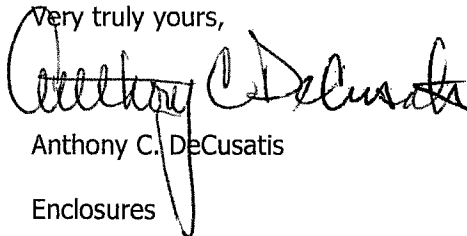 Very truly yours,
Anthony C. DeCusatis
Anthony C. DeCusatis
Enclosures